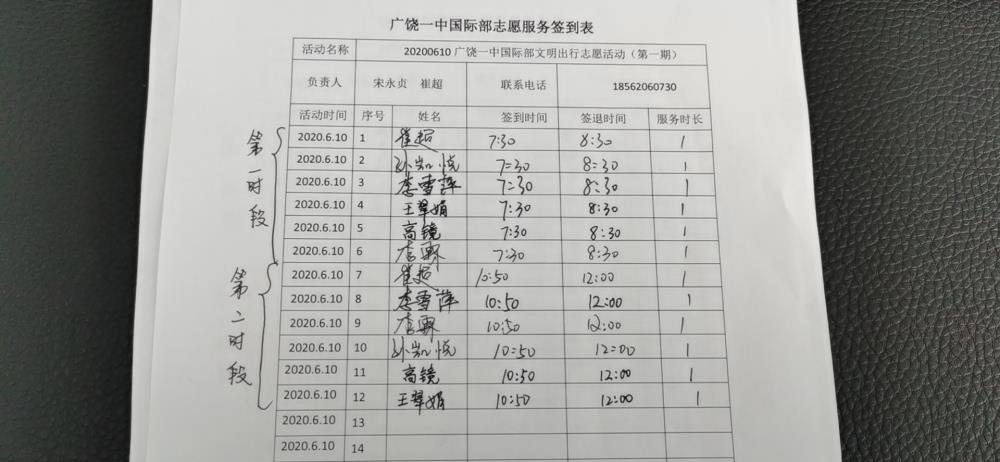 广饶一中国际部志愿服务签到表
活动名称 20200610 广饶一中国际部文明出行志愿活动（第一期）
负责人 宋永贞 崔超 联系电话 18562060730
活动时间 序号 姓名 签到时间 签退时间 服务时长
第一时段
2020.6.10 1 崔超 7:30 8:30 1
2020.6.10 2 孙知悦 7:30 8:30 1
2020.6.10 3 李雪萍 7:30 8:30 1
2020.6.10 4 王翠娟 7:30 8:30 1
2020.6.10 5 高镜 7:30 8:30 1
2020.6.10 6 7:30 8:30 1
第二时段
2020.6.10 7 崔超 10:50 12:00 1
2020.6.10 8 李雪萍 10:50 12:00 1
2020.6.10 9 10:50 12:00 1
2020.6.10 10 孙知悦 10:50 12:00 1
2020.6.10 11 高镜 10:50 12:00 1
2020.6.10 12 王翠娟 10:50 12:00 1
2020.6.10 13
2020.6.10 14